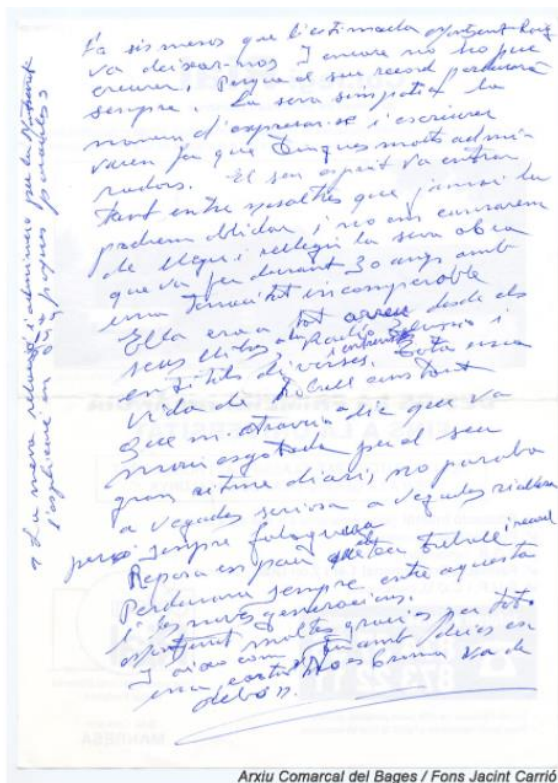 Fa sis mesos que l'estimada Montserrat Roig
va deixar-nos I encare no ho puc
creurer, Perque el seu record perdurarà
sempre. La seva simpatia la
manera d'expresar-se i escriurer
varen fer que tingues molts admi
radors. El seu esperit va entrar
tant entre nosaltres que jamai la
podrem oblidar, i no ens cansarem
de llegir i rellegir la seva obra
que va fer durant 30 anys amb
una tenacitat incomparable
Ella era a tot arreu desde els
seus llibres a la Radio Televisio i
entitats diverses. i entrevistes Tota una
vida de treball constant
Que m'atreviria a dir que va
morir esgotada per el seu
gran ritme diari, no paraba
a vegades seriosa a vegades riallera
pero sempre
Reposa en pau el teu treball i record
Perdurara sempre entre aquesta
i les noves generacions.
Montserrat moltes gracies per tot.
I aixo com tu amb deies en
una carta. No es broma va de
debò».
« La meva relació i admiració per la Montserrat
l'explicaré en dues propies paraules»
Arxiu Comarcal del Bages / Fons Jacint Carrió